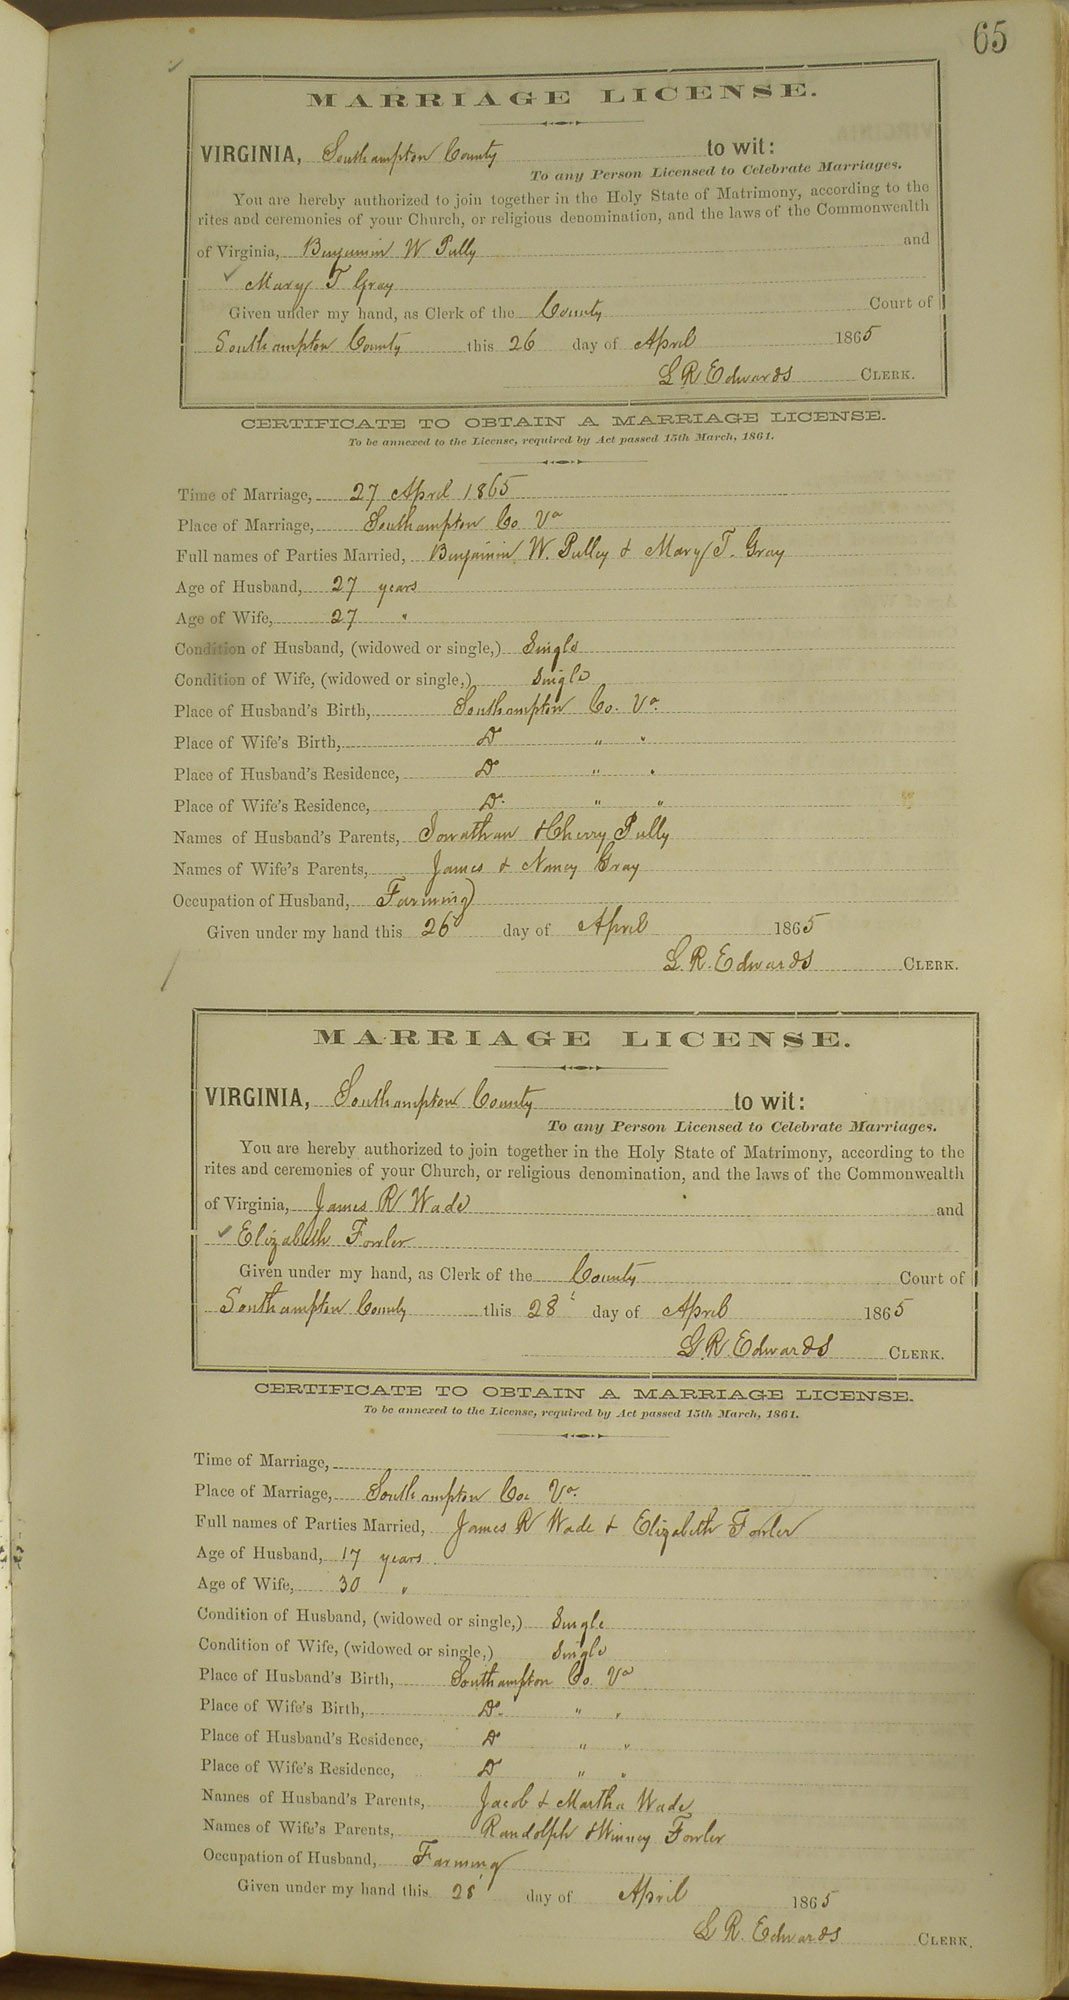 65
MARRIAGE LICENSE.
VIRGINIA, Southampton County to wit:
To any Person Licensed to Celebrate Marriages.
You are hereby authorized to join together in the Holy State of Matrimony, according to the
rites and ceremonies of your Church, or religious denomination, and the laws of the Commonwealth
of Virginia, Benjamin W Pully and
Mary T Gray
Given under my hand, as Clerk of the County Court of
Southampton County this 26 day of April 1865
L R Edwards CLERK.
CERTIFICATE TO OBTAIN A MARRIAGE LICENSE.
To be annexed to the License, required by Act passed 15th March, 1861.
Time of Marriage, 27 April 1865
Place of Marriage, Southampton Co Va
Full names of Parties Married, Benjamin W. Pulley & Mary T. Gray
Age of Husband, 27 years
Age of Wife, 27 "
Condition of Husband, (widowed or single,) Single
Condition of Wife, (widowed or single,) Single
Place of Husband's Birth, Southampton Co. Va.
Place of Wife's Birth, Do " "
Place of Husband's Residence, Do " "
Place of Wife's Residence, Do. " "
Names of Husband's Parents, Jonathan & Cherry Pully
Names of Wife's Parents, James & Nancy Gray
Occupation of Husband, Farming
Given under my hand this 26 day of April 1865
L. R. Edwards CLERK.
MARRIAGE LICENSE.
VIRGINIA, Southampton County to wit:
To any Person Licensed to Celebrate Marriages.
You are hereby authorized to join together in the Holy State of Matrimony, according to the
rites and ceremonies of your Church, or religious denomination, and the laws of the Commonwealth
of Virginia, James R Wade and
Elizabeth Fowler
Given under my hand, as Clerk of the County Court of
Southampton County this 28 day of April 1865
L R Edwards CLERK.
CERTIFICATE TO OBTAIN A MARRIAGE LICENSE.
To be annexed to the License, required by Act passed 15th March, 1861.
Time of Marriage,
Place of Marriage, Southampton Co. Va.
Full names of Parties Married, James R Wade & Elizabeth Fowler
Age of Husband, 17 years
Age of Wife, 30 "
Condition of Husband, (widowed or single,) Single
Condition of Wife, (widowed or single,) Single
Place of Husband's Birth, Southampton Co. Va
Place of Wife's Birth, Do. " "
Place of Husband's Residence, Do " "
Place of Wife's Residence, Do " "
Names of Husband's Parents, Jacob & Martha Wade
Names of Wife's Parents, Randolph & Winney Fowler
Occupation of Husband, Farming
Given under my hand this 28 day of April 1865
L R. Edwards CLERK.